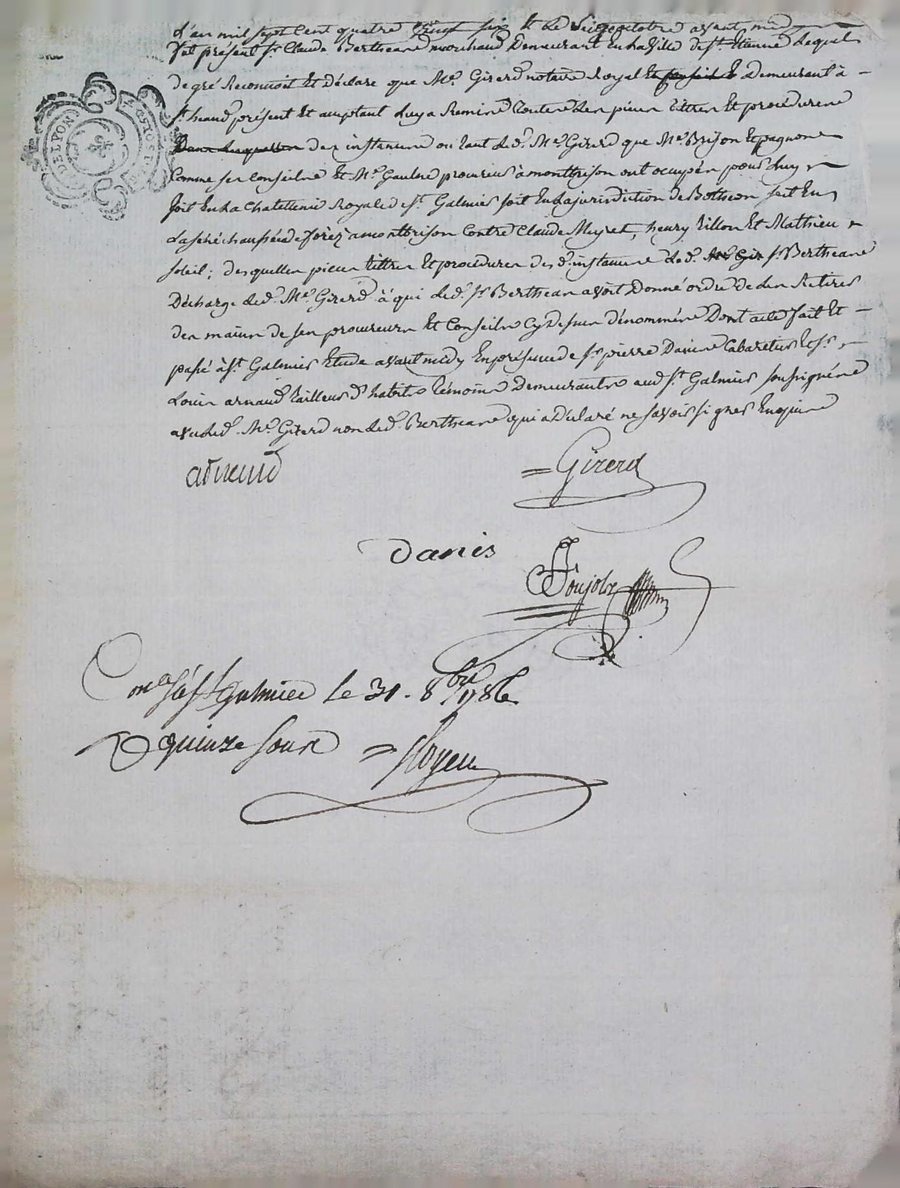 L'an mil sept cent quatre vingt six et le octobre avant midy
fut présent sr. Claude Bertheane marchand Demeurant En la Ville de st. Etienne Lequel
de gré Reconnoit Et Déclare que Me. Girerd notaire Royal Et Demeurant à
st. présent Et aceptant Luy a Remis toutes Les pieces titres Et procédures
Dans Lesquelles des instances ou tant Led. Me. Girerd que Me. Brison Espagnon
Comme ses Conseils Et Me. Gaulne procureur à montbrison ont occupés pour Luy
soit En La Chatellenie Royale de st. Galmier soit En La jurisdiction de Botheon soit En
La sénéchaussée de forez a montbrison Contre Claude Meyret, henry tillon Et Mathieu
soleil; desquelles pieces titres Et procédures desd. instances Led. sr. Bertheane
Décharge Led. Me. Girerd à qui Led. sr. Bertheane avoit Donné ordre de Les Retirer
des mains de ses procureurs Et Conseils Cy dessus dénommés Dont acte fait Et
passé à st. Galmier Etude avant midy En présence de sr. pierre Danis Cabaretier Et sr.
Louis arnaud tailleur d'habits témoins Demeurants aud. st. Galmier soussignés
avec Led. Me. Girerd non Led. Bertheane qui a déclaré ne savoir signer Enquis
arnaud
= Girerd
Danis
Conlé à st Galmier Le 31. 8bre 1786
R quinze sours